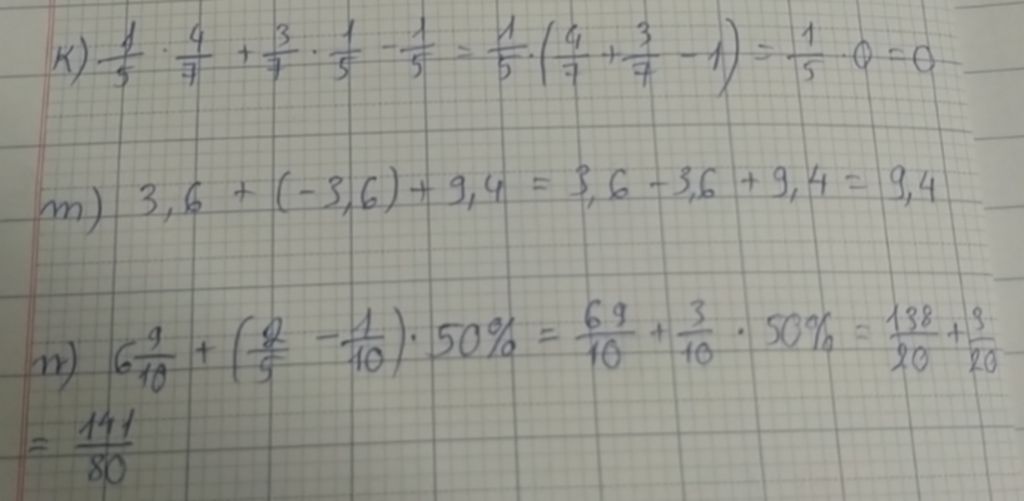 к) 1/5 · 4/7 + 3/7 · 1/5 - 1/5 = 1/5 · (4/7 + 3/7 - 1) = 1/5 · 0 = 0
m) 3,6 + (-3,6) + 9,4 = 3,6 - 3,6 + 9,4 = 9,4
n) 6 9/10 + (2/5 - 1/10) · 50% = 69/10 + 3/10 · 50% = 138/20 + 3/20
= 141/80